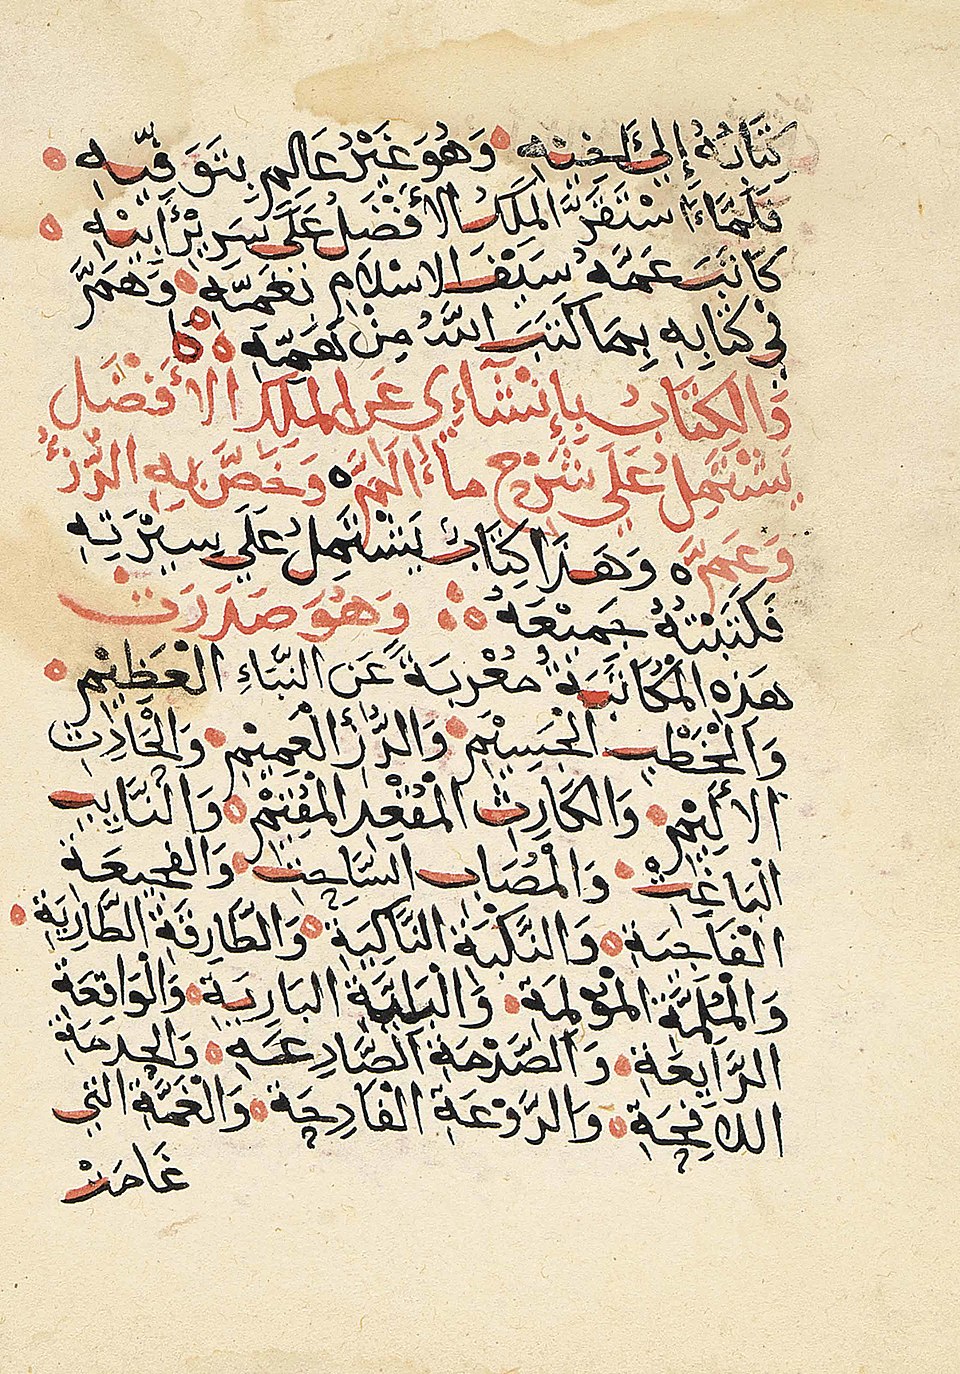 كِتَابُهُ إِلَى أَخِيهِ وَهُوَ غَيْرُ عَالِمٍ بِتَوَفِّيهِ
فَلَمَّا اسْتَقَرَّ المَلِكُ الأَفْضَلُ عَلَى سَرِيرِ أَبِيهِ
كَاتَبَ عَمَّهُ سَيْفَ الاسْلَامِ نعَمِّهِ وَهَمَّ
فِي كِتَابِهِ بِمَا كَتَبَ اللهُ مِنْ نعَمِّهِ
وَالكِتَابُ بِإِنْشَاءِي عَنِ المَلِكِ الأَفْضَلِ
يَشْتَمِلُ عَلَى شَرْحِ مَا أَلَمَّ وَخَصَّ بِهِ الرُّزْءُ
وَعَمَّ وَهَذَا كِتَابٌ يَشْتَمِلُ عَلَى سِيرَتِهِ
فَكَتَبْتُهُ جَمِيعَهُ وَهُوَ صَدَرَتْ
هَذِهِ المُكَاتَبَةُ مُعْرِبَةً عَنِ النَّبَاءِ الْعَظِيْمِ
وَالْخَطْبِ الجَسِيْمِ وَالرُّزْءِ الْعَمِيْمِ وَالْحَادِثِ
الأَلِيْمِ وَالكَارِثِ الْمُقْعِدِ المُقِيْمِ وَالنَّايِبِ
البَاغِتْ وَالْمُصَابِ السَّاحِتِ وَالفَجِيعَة
الْفَاجِيَةِ وَالنَّكْبَةِ النَّاكِيَةِ وَالطَّارِقَةِ الطَّارِيَةِ
وَالْمُلِمَّةِ المُؤلِمَةِ وَالْبَلِيَّةِ البَارِيَةِ وَالْوَاقِعَةِ
الرَّايِعَةِ وَالصَّدْمَةِ الصَّادِعَةِ وَالحِدمَةِ
اللافِحَةِ وَالرَّوْعَةِ الفَادِحَةِ وَالْغُمَّةِ التي
غَامَتْ